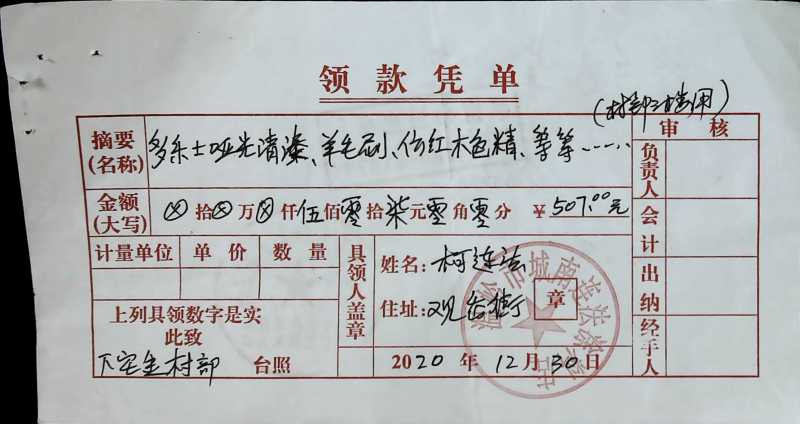 领款凭单
(村部楼用)
摘要(名称) 多乐士哑光清漆、羊毛刷、仿红木色精、等等…… 审核
金额(大写) ⊗拾⊗万⊗仟伍佰零拾柒元零角零分 ¥507.00元 负责人
计量单位 单价 数量 具领人盖章 姓名:柯连法 会计
住址:观岙街 章 出纳
上列具领数字是实
此致
村部 台照 2020年12月30日 经手人
城南连法